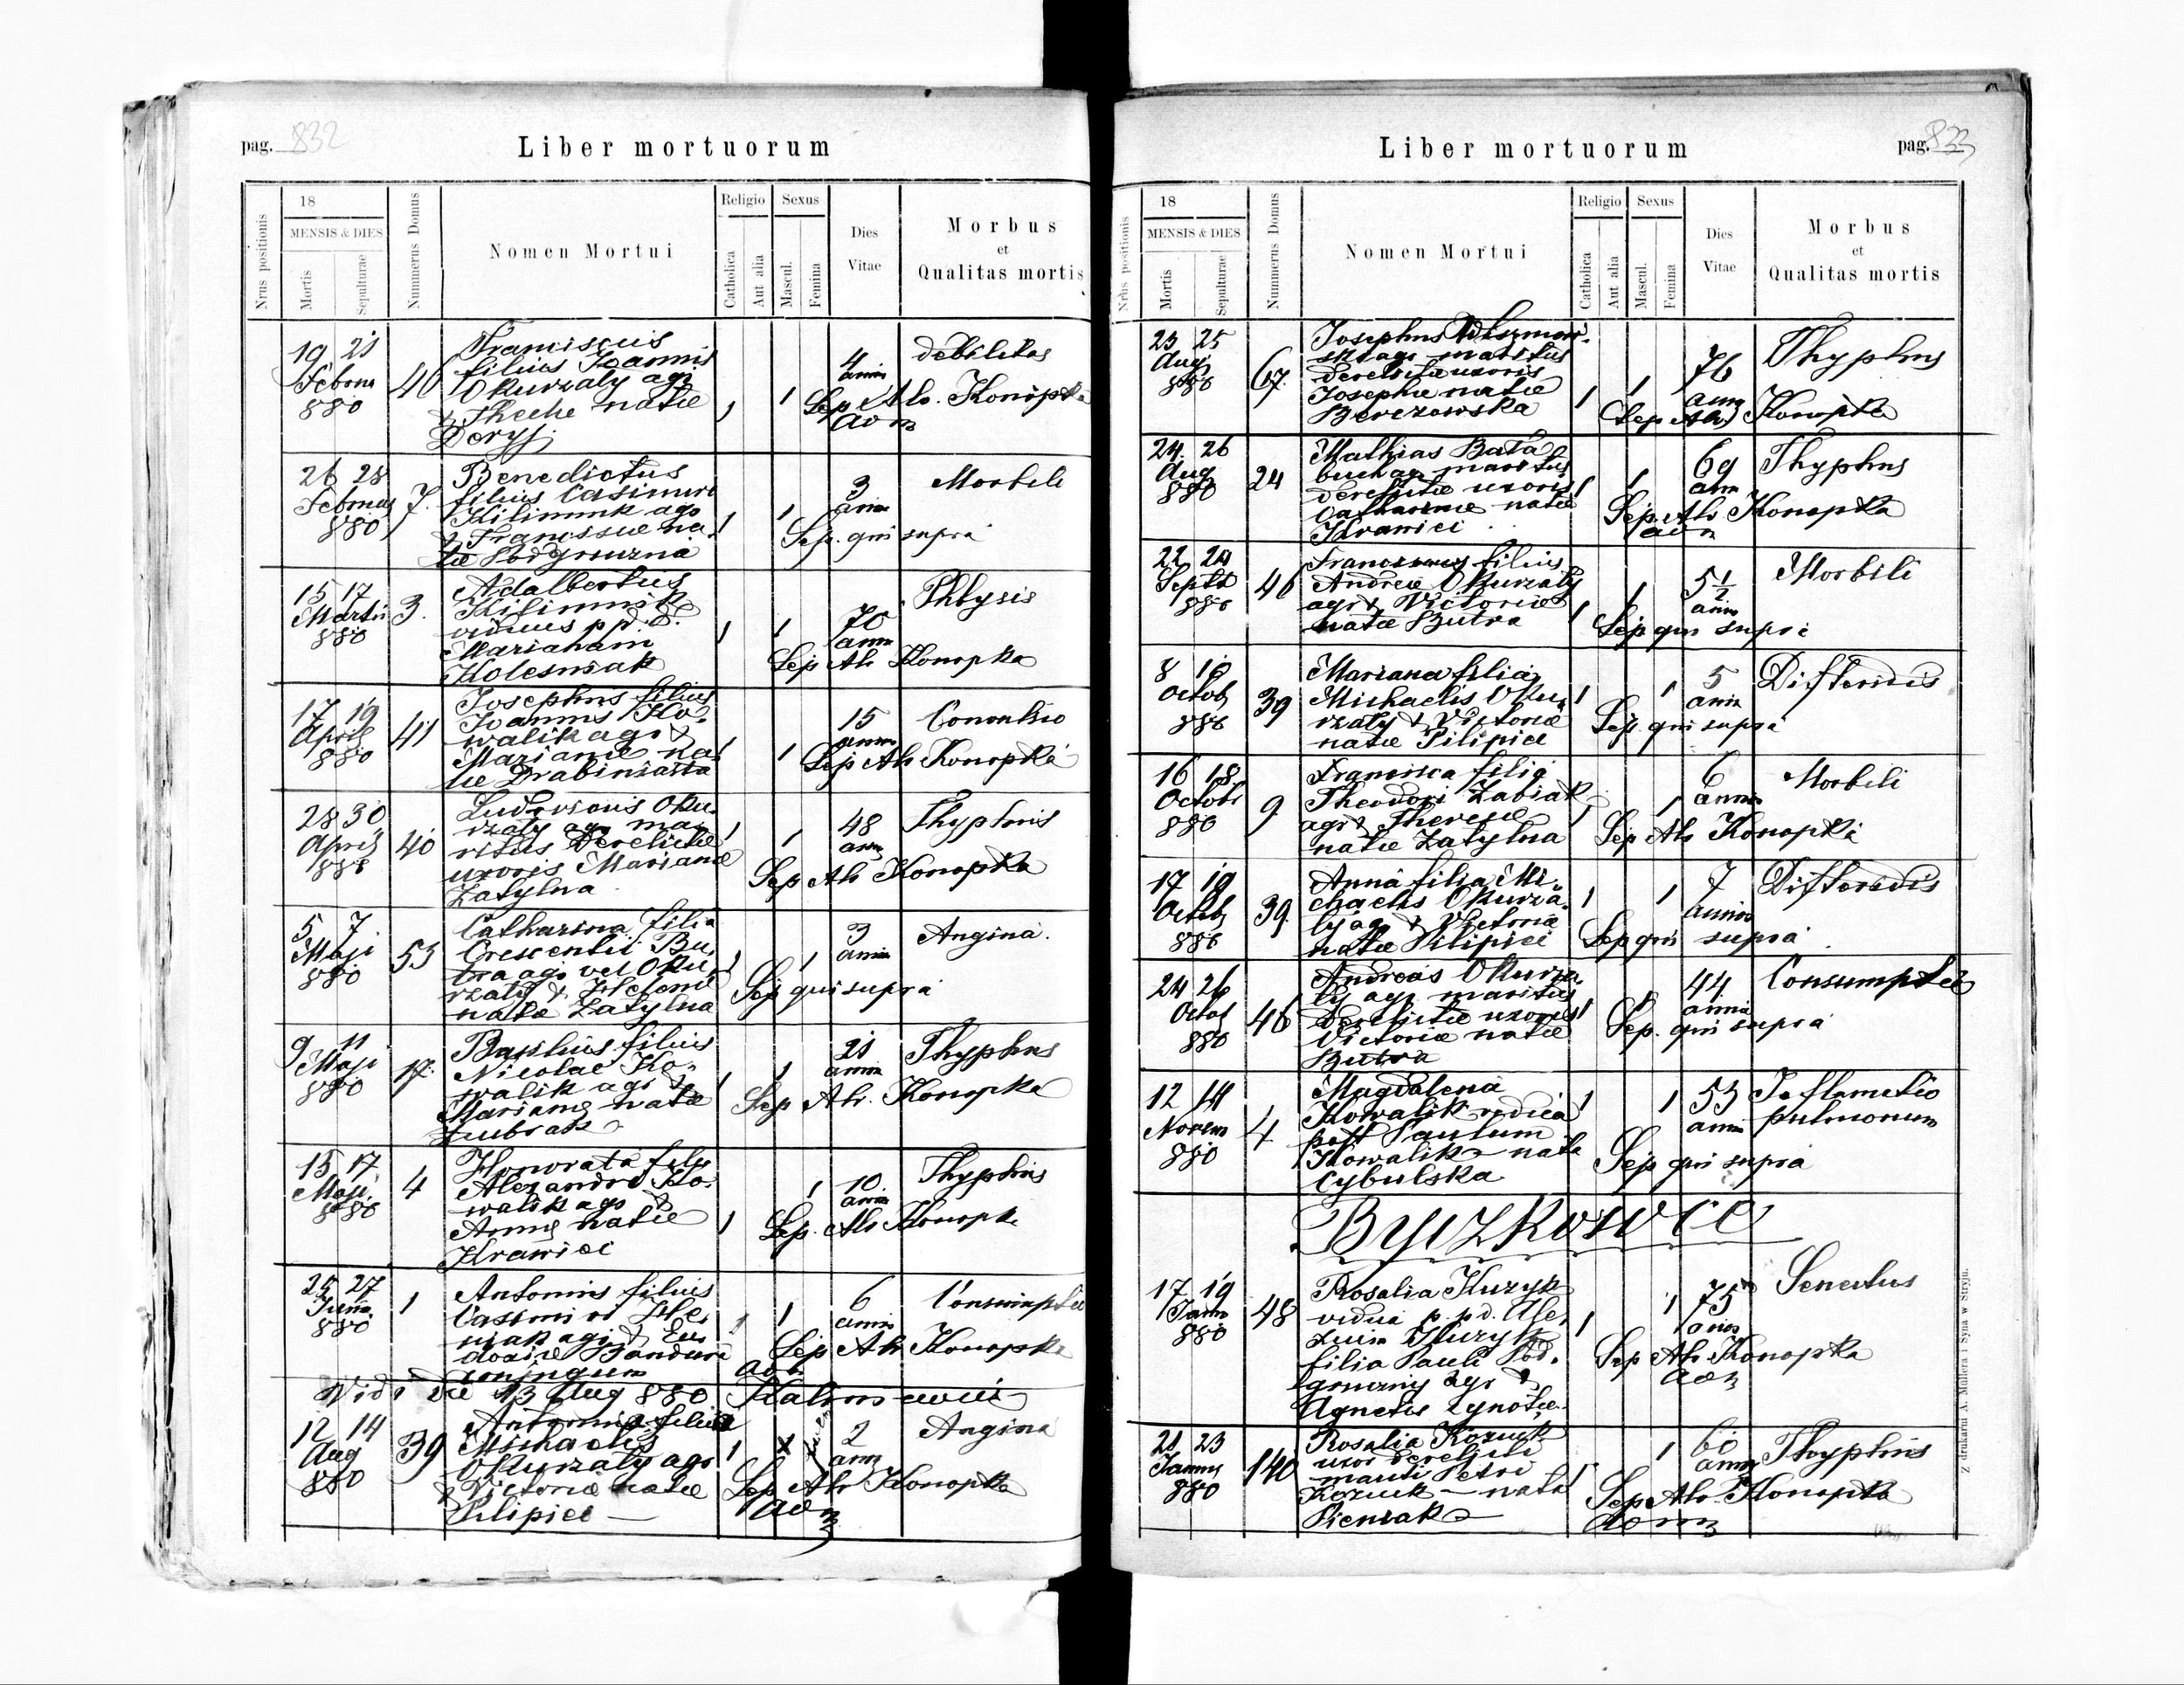 pag. 832
Liber mortuorum
Nrus positionis
18
MENSIS & DIES
Mortis
Sepulturae
Nummerus Domus
Nomen Mortui
Religio
Catholica
Aut alia
Sexus
Mascul.
Femina
Dies
Vitae
Morbus
et
Qualitas mortis
19 21
Februa
880
46
Franciscus
filius Joannis
Okurzaly agr
& Theclae natae
1 1
4
anni
debilitas
Sep. Alr. Konopka
adm
26 28
Februar
880
7.
Benedictus
filius Casimiri
Kilimnik agr
& Franciscae na
tae Podgrouzna
1 1
3
anni
Morbili
Sep. qui supra
15 17
Martii
880
3.
Adalbertus
Kilimnik
viduus p. p. d.
Mariānām
Kolesniak
1 1
70
anni
Phtysis
Sep Alr Konopka
17 19
April
880
41
Josephus filius
Joannis Ko-
walik agr &
Marianae na
tae Drabiniasta
1 1
15
anni
Sep Alr Konopka
28 30
April
880
40
Ludovicus Oku
rzaly agr ma
ritus derelictae
uxoris Marianae
Zatylna
1 1
48
ann
Thyphus
Sep Alr Konopka
5 7
Maji
880
53
Catharina filia
Crescentii Bu
tra agr vel Oku
rzaly & Helenae
natae Zatylna
1 1
3
anni
Angina.
Sep qui supra
9 11
Maji
880
17.
Basilius filius
Nicolae Ko-
walik agr &
Marianae natae
1 1
21
anni
Thyphus
Sep Alr. Konopka
15 17
Maji
880
4
Honorata filia
Alexandri Ko-
walik agr &
Annae natae
Krawiei
1 1
10
anni
Thyphus
Sep. Alr Konopka
25 27
Junii
880
1
Antonius filius
Casimiri
agr & Eu
doxiae Bandura
conjugum
1 1
6
anni
Consumptio
Sep Alr Konopka
adm
Vidi die 13 Aug 880
12 14
Aug
880
39
Michaelis
Okurzaly agr
& Victoriae natae
Pilipiec
1
2
anni
Angina
Sep Alr Konopka
adm
Liber mortuorum
pag. 833
Nrus positionis
18
MENSIS & DIES
Mortis
Sepulturae
Nummerus Domus
Nomen Mortui
Religio
Catholica
Aut alia
Sexus
Mascul.
Femina
Dies
Vitae
Morbus
et
Qualitas mortis
23 25
Aug
880
67.
Josephus
ski agr maritus
derelictae uxoris
Josephae natae
Berezowska
1 1
76
anni
Thyphus
Sep Alr Konopka
24. 26
Aug
880
24
Mathias Bata
buch agr maritus
derelictae uxoris
Catharinae natae
Krawiei
1 1
69
ann
Thyphus
Sep. Alr Konopka
adm
22 24
Septb
880
46
Franciscus filius
Andreae Okurzaly
agr & Victoriae
natae Butra
1 1
5 1/2
anni
Morbili
Sep qui supra
8 10
Octob
880
39
Mariana filia
Michaelis Oku
rzaly & Victoriae
natae Pilipiec
1 1
5
anni
Difteridis
Sep. qui supra
16 18
Octobr
880
9
Francisca filia
Theodori Zabiak
agr & Theresiae
natae Zatylna
1 1
6
annis
Morbili
Sep Alr Konopka
17 19
Octob
880
39
Anna filia Mi
chaelis Okurza
ly agr & Victoriae
natae Pilipiei
1 1
7
annor
Difteridis
Sep qui supra
24 26
Octob
880
46
Andreas Okurza
ly agr maritus
derelictae uxoris
Victoriae natae
Butra
1 1
44
annis
Consumptio
Sep. qui supra
12 14
Novem
880
4
Magdalena
Kowalik vidua
post Paulum
Kowalik nata
Cybulska
1 1
53
anni
Inflamatio
pulmonum
Sep qui supra
Byczkowce
17 19
Janu
880
48
Rosalia Kuzyk
vidua p. p. d.
Kuzyk
filia Pauli Pod-
grouzny agr &
Agnetis
1 1
75
anos
Senectus
Sep Alr Konopka
adm
21 23
Januar
880
140
Rosalia Kozuik
uxor derelicti
mariti Petri
Kozuik nata
Pieniak
1 1
60
anni
Thyphus
Sep Alr. Konopka
adm
Z drukarni A. Müllera i Syna w Stryju.